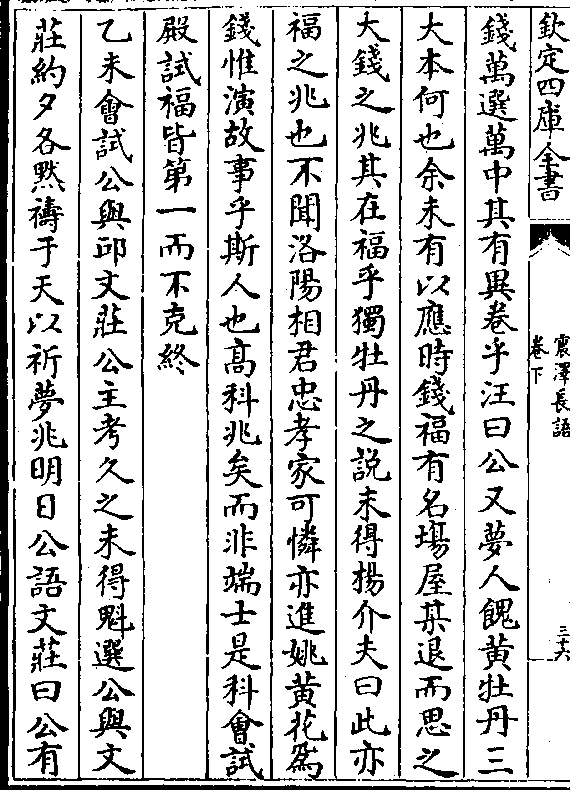 欽定四庫全書
震澤長語
卷下
三十六
錢萬選萬中其有異卷乎汪曰公又夢人餽黄牡丹三
大本何也余未有以應時錢福有名塲屋某退而思之
大錢之兆其在福乎獨牡丹之說未得揚介夫曰此亦
福之兆也不聞洛陽相君忠孝家可憐亦進姚黄花為
錢惟演故事乎斯人也髙科兆矣而非端士是科會試
殿試福皆第一而不克終
乙未會試公與邱文莊公主考久之未得魁選公與文
莊約夕各黙禱于天以祈夢兆明日公語文莊曰公有